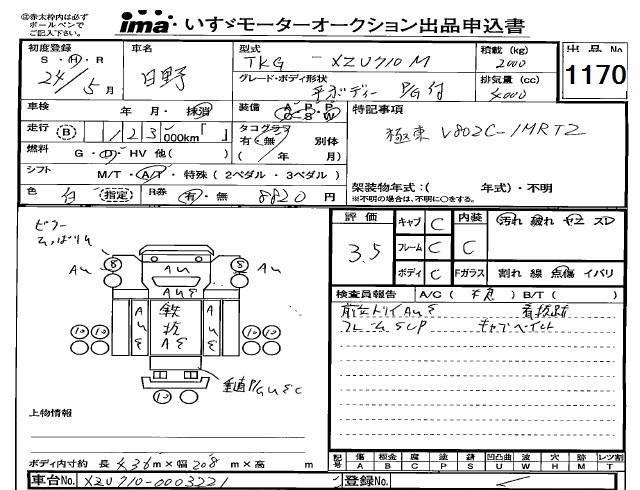 ㊟赤太枠内は必ず
ボールペンで
ご記入下さい。
ima いすゞモーターオークション出品申込書
初度登録 S・H・R 24/5月
車名 日野
型式 TKG - XZU710M
積載(kg) 2000
出品No 1170
グレード・ボディ形状 平ボディー P/G付
排気量(cc) 4000
車検 年 月・抹消
装備 A・P・P O-S・W
特記事項
走行 B 123 000km「 」
タコグラフ 有・無 別体
( / 年 月)
極東 V802C-1MRT2
燃料 G・D・HV 他( )
シフト M/T・A/T・特殊(2ペダル・3ペダル)
架装物年式:( 年式)・不明
※不明の場合は、不明に○をする。
色 白 (指定) R券 有・無 8820円
評価 3.5
キャブ C
内装 C
汚れ 破れ ヤニ スレ
フレーム C
ボディ C
Fガラス 割れ 線 点傷 イバリ
8 8
AU AU AU
AUE
AUE 鉄板 AE AUE
10 10 10 10
10
検査員報告 A/C( ) B/T( )
看板跡
キャブペイント
上物情報
ボディ内寸約 長 436m×幅 208m×高 m
記号 傷A 板金B 腐C 塗P 錆S 凹凸曲U 波W 穴H 跡M レツ割T
車台No. XZU710-0003221
登録No.